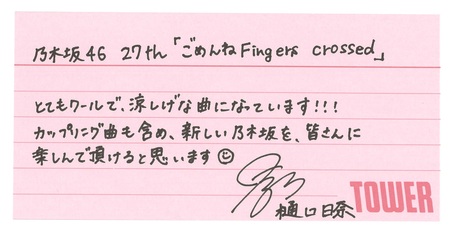 乃木坂46 27th「ごめんねFingers crossed」
とてもクールで、涼しげな曲になっています!!!
カップリング曲も含め、新しい乃木坂を、皆さんに
楽しんで頂けると思います☺
樋口日奈
TOWER